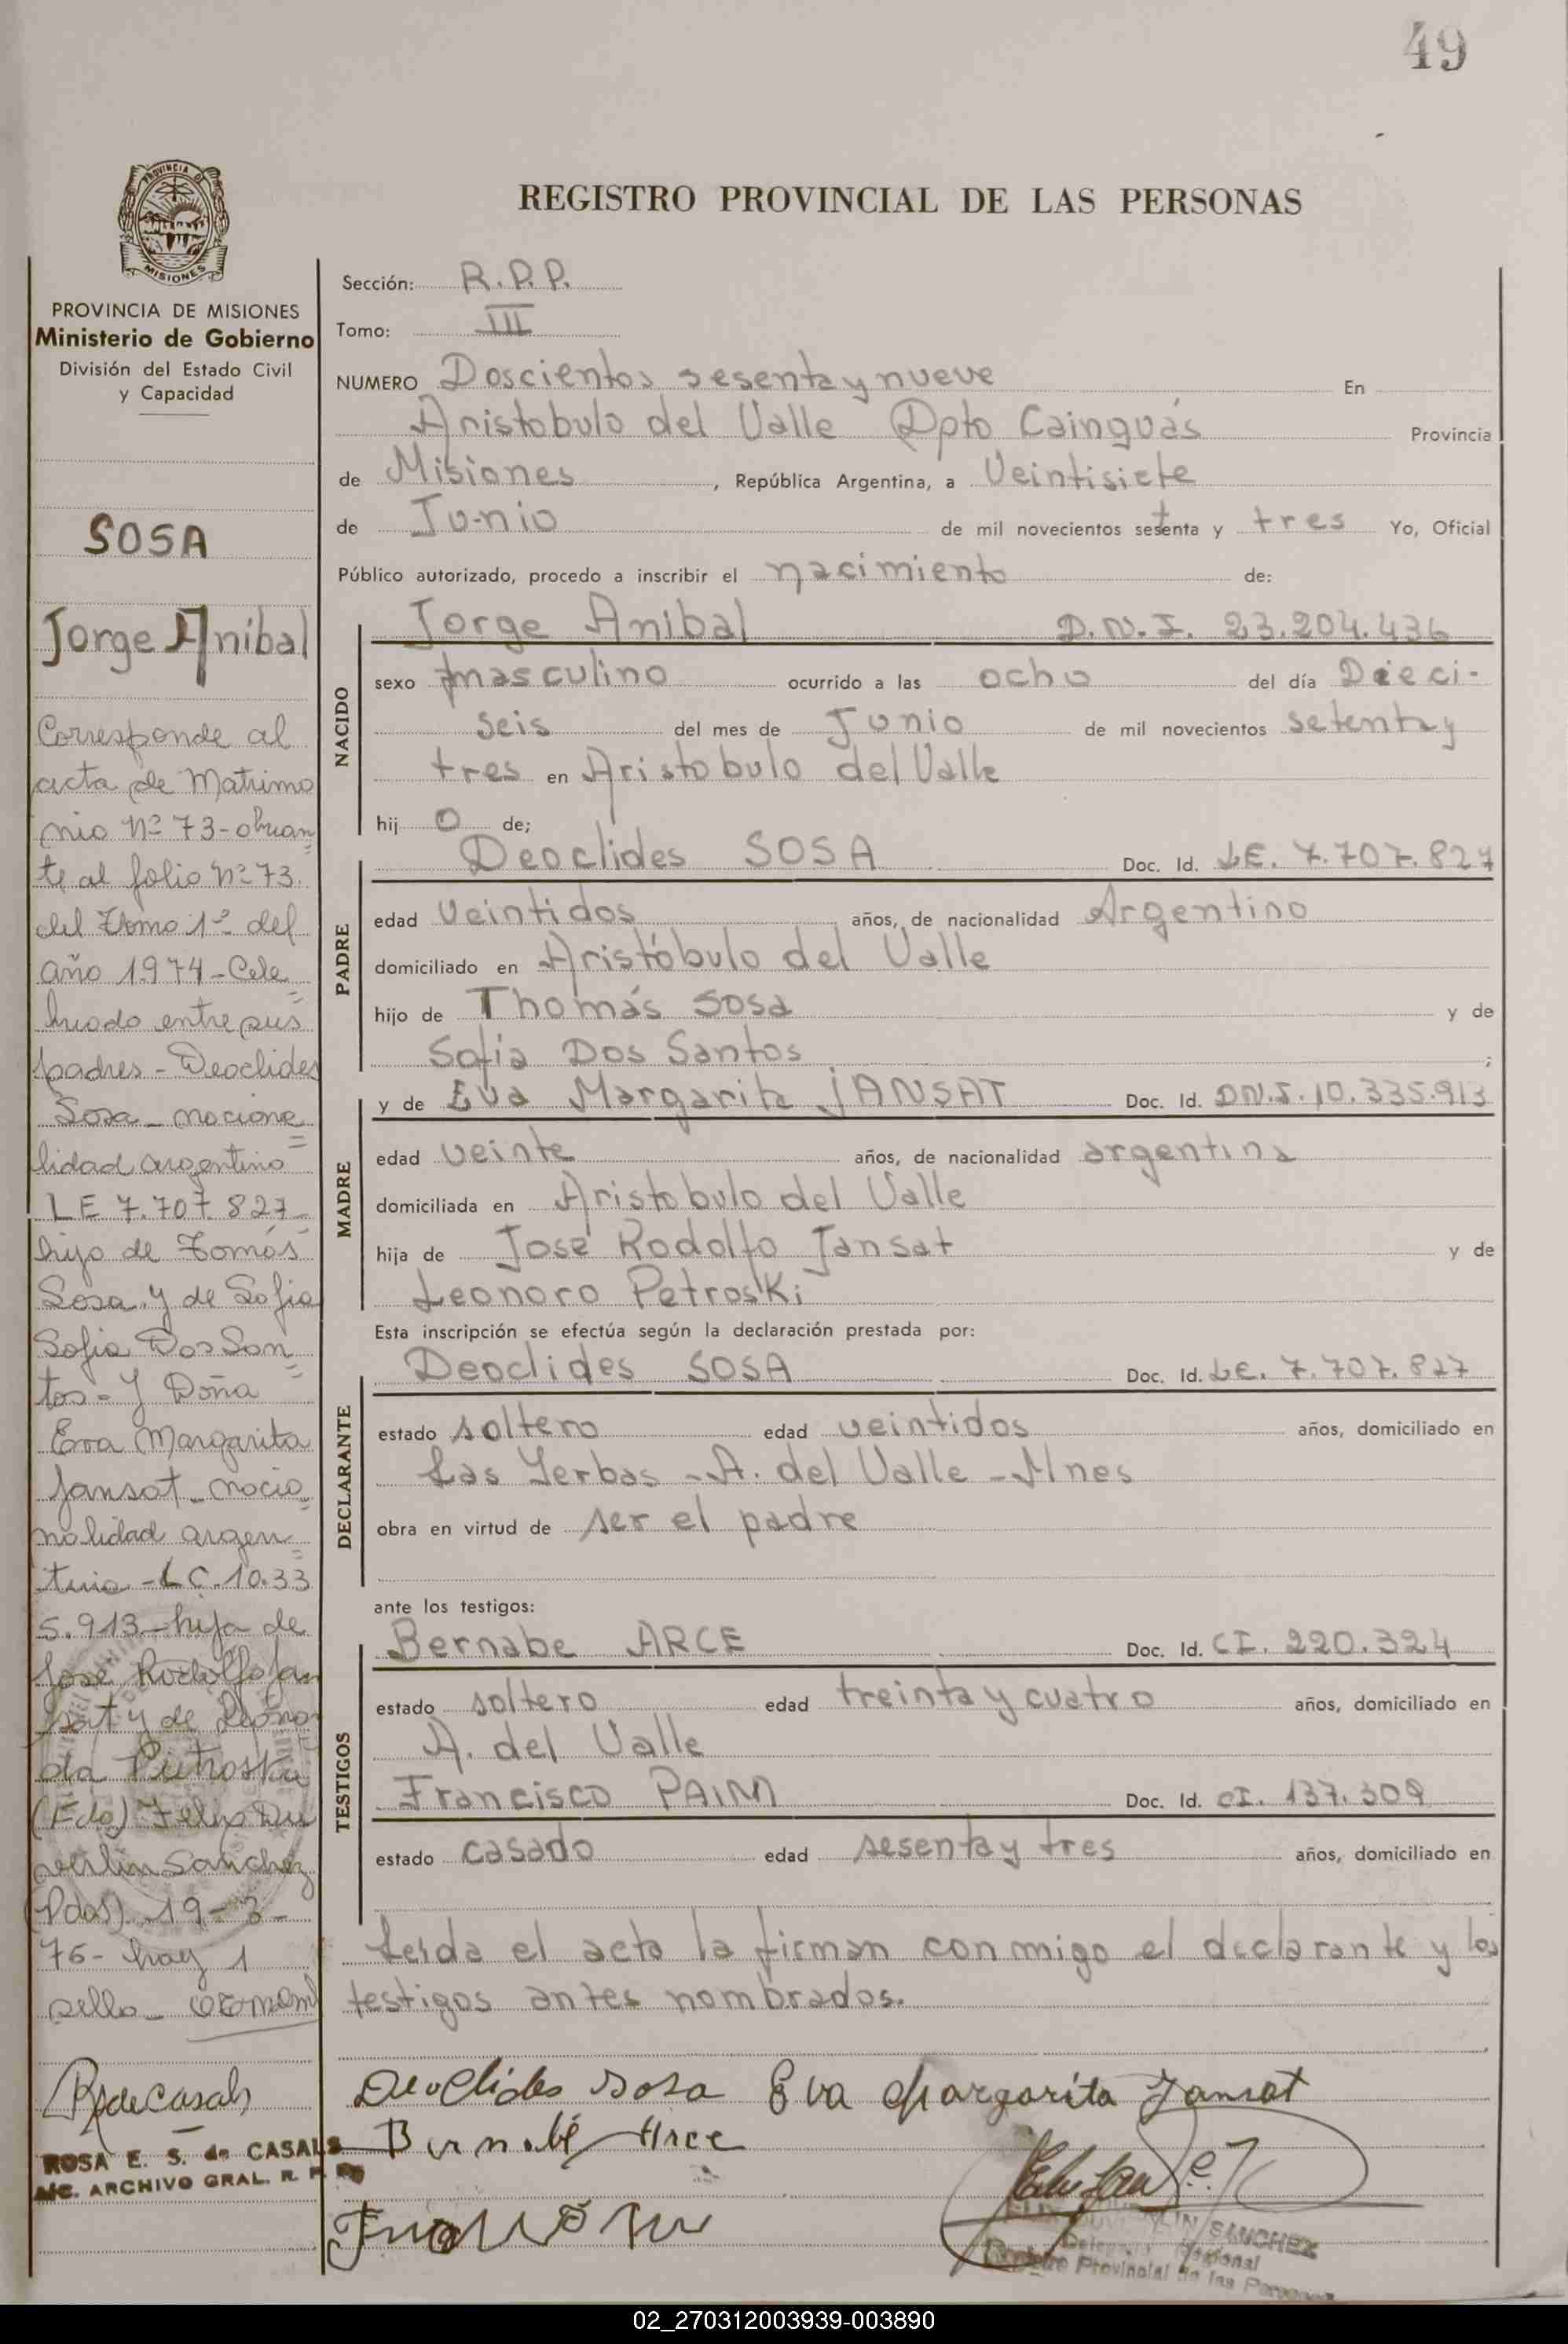 49
PROVINCIA DE
MISIONES
PROVINCIA DE MISIONES
Ministerio de Gobierno
División del Estado Civil
y Capacidad
SOSA
Jorge Anibal
Corresponde al
acta de Matrimo
nio Nº 73-obran
te al folio Nº 73.
del Tomo 1º del
año 1974-Cele
brado entre sus
padres - Deoclides
Sosa - naciona
lidad argentino
LE 7.707.827-
hijo de Tomás
Sosa y de Sofia
Sofia Dos San
tos - Y Doña
Eva Margarita
Jansat - nacio
nalidad argen
tina - L.C. 10.33
5.913 - hija de
José Rodolfo Jan
sat y de Leono
da
(Fdo)
Sanchez
(Pdas) 19-3-
76- hay 1
sello -
ROSA E. S. de CASALS
ARCHIVO GRAL. R. P.
REGISTRO PROVINCIAL DE LAS PERSONAS
Sección: R.P.P.
Tomo: III
NUMERO Doscientos sesenta y nueve En
Aristobulo del Valle Dpto Cainguás Provincia
de Misiones, República Argentina, a Veintisiete
de Junio de mil novecientos setenta y tres Yo, Oficial
Público autorizado, procedo a inscribir el nacimiento de:
NACIDO
Jorge Anibal D.N.I. 23.204.436
sexo masculino ocurrido a las ocho del día Dieci-
seis del mes de Junio de mil novecientos setenta y
tres en Aristobulo del Valle
hij o de;
PADRE
Deoclides SOSA Doc. Id. LE. 7.707.827
edad Veintidos años, de nacionalidad Argentino
domiciliado en Aristóbulo del Valle
hijo de Thomás Sosa y de
Sofia Dos Santos ;
MADRE
y de Eva Margarita JANSAT Doc. Id. DN.I. 10.335.913
edad Veinte años, de nacionalidad argentina
domiciliada en Aristobulo del Valle
hija de José Rodolfo Jansat y de
Leonoro Petroski
Esta inscripción se efectúa según la declaración prestada por:
DECLARANTE
Deoclides SOSA Doc. Id. LE. 7.707.827
estado soltero edad veintidos años, domiciliado en
Las Yerbas - A. del Valle - Mnes
obra en virtud de ser el padre
ante los testigos:
TESTIGOS
Bernabe ARCE Doc. Id. CI. 220.324
estado soltero edad treinta y cuatro años, domiciliado en
A. del Valle
Francisco PAIM Doc. Id. CI. 137.309
estado casado edad sesenta y tres años, domiciliado en
Leida el acta la firman conmigo el declarante y los
testigos antes nombrados.
Deoclides Sosa Eva Margarita Jansat
Bernabé Arce
SANCHEZ
Provincial de las Personas
02_270312003939-003890